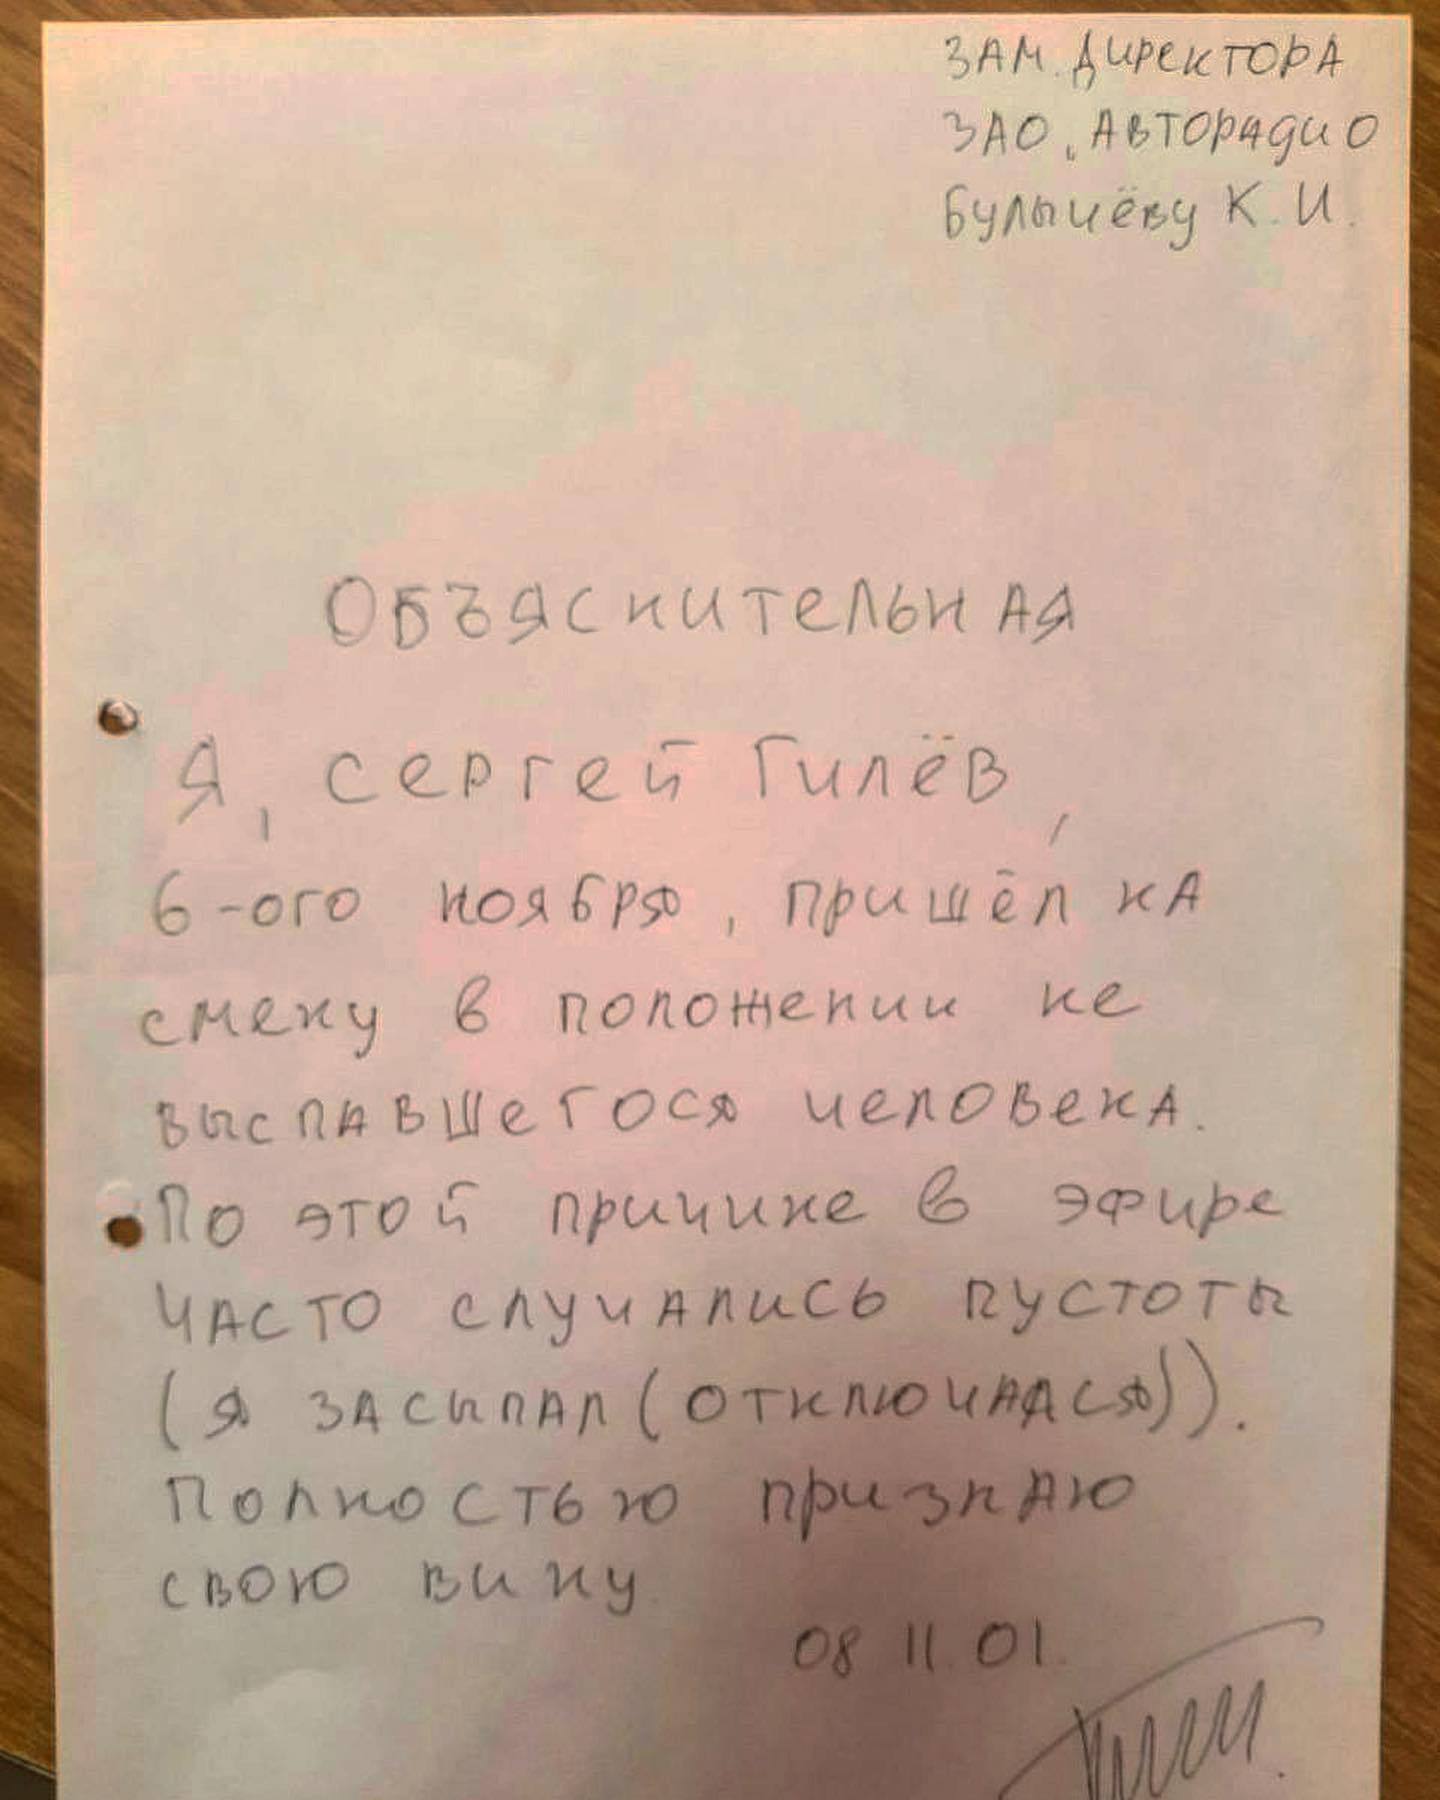 ЗАМ. ДИРЕКТОРА
ЗАО „АВТОРАДИО
БУЛЫЧЁВУ К. И.
ОБЪЯСНИТЕЛЬНАЯ
Я, СЕРГЕЙ ГИЛЁВ,
6-ОГО НОЯБРЯ, ПРИШЁЛ НА
СМЕНУ В ПОЛОЖЕНИИ НЕ
ВЫСПАВШЕГОСЯ ЧЕЛОВЕКА.
ПО ЭТОЙ ПРИЧИНЕ В ЭФИРЕ
ЧАСТО СЛУЧАЛИСЬ ПУСТОТЫ
(Я ЗАСЫПАЛ (ОТКЛЮЧАЛСЯ)).
ПОЛНОСТЬЮ ПРИЗНАЮ
СВОЮ ВИНУ
08 11.01.